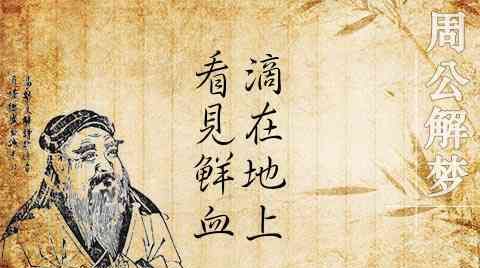 周公解梦
看見鮮血
滴在地上